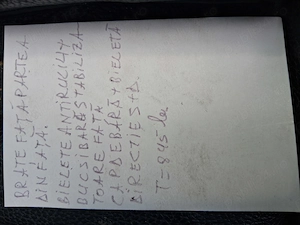 BRAȚE FAȚĂ PARTEA
DIN FAȚĂ.
BIELETE ANTIRULIU 4
BUCSI BARĂ STABILIZA-
TOARE FAȚĂ
CAP DE BARĂ + BIELETĂ
DIRECȚIE S+D.
T = 845 lei